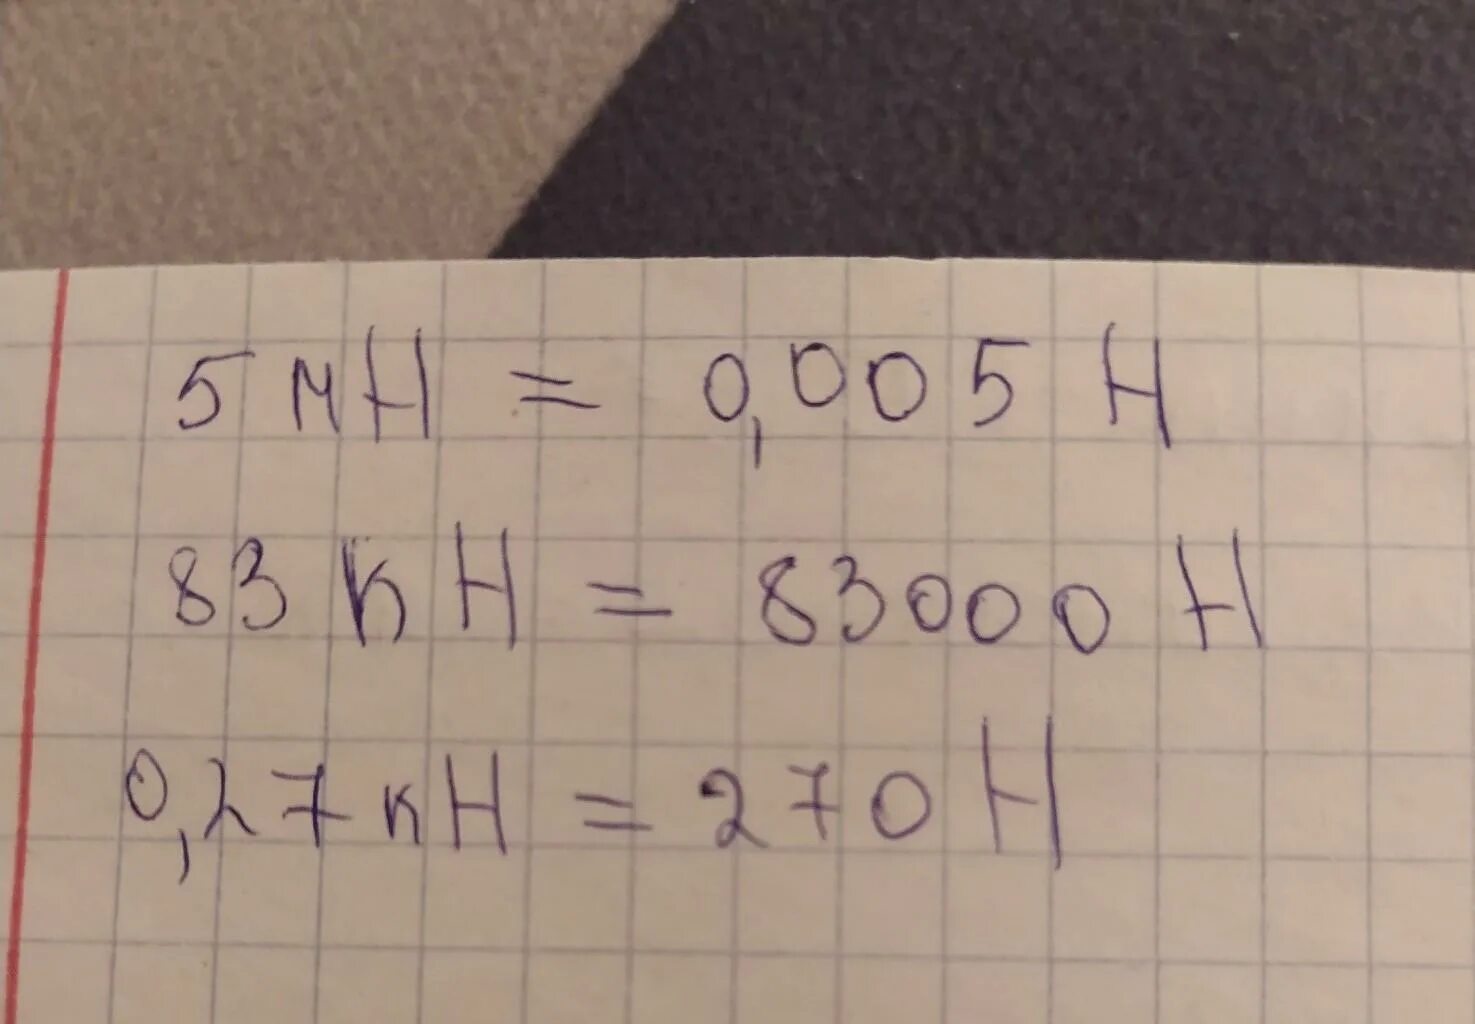 5 мН = 0,005 Н
83 кН = 83000 Н
0,27 кН = 270 Н